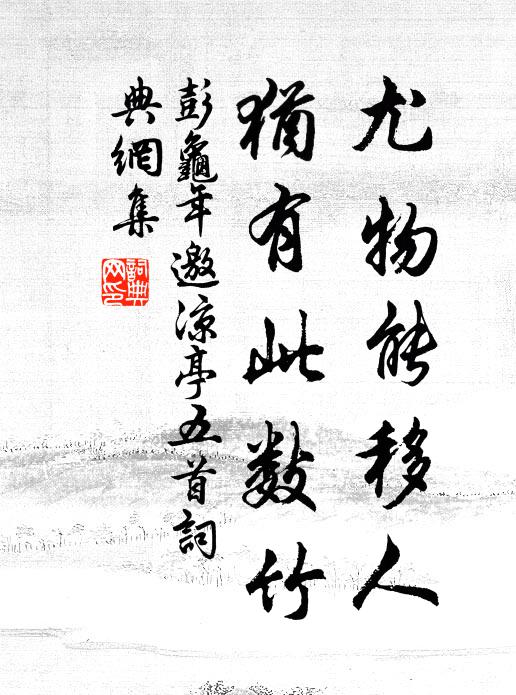 尤物能移人
猶有此數竹
彭龜年邀凉亭五首詞
典網集
詞典
网印